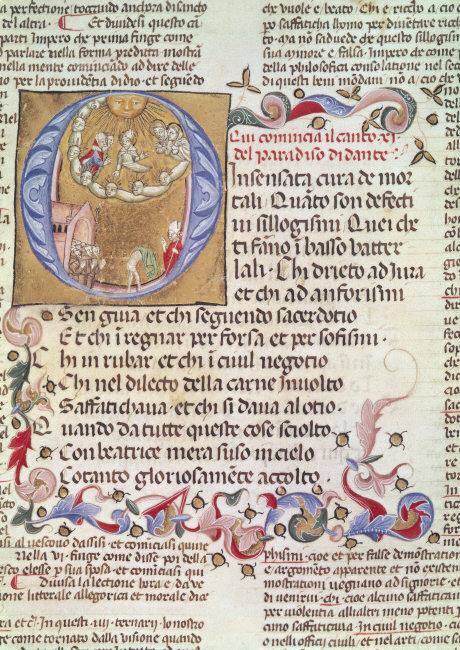 perfectione toccando anchora distincto
del altra · Et dividesi questo cā
parti Impero che prima finge come
parlare nella forma preduta mostrā
nella mente cominciado ad dire delle
no per la providentia didio · et seguēdo
che vuole e beato · Chi e riccho a
po saffaticha lhomo per divētare ricch
to · Ma no sa duve che questo sillogis
sua minore e falsa · Impero che come
della philosofici consolatione nel seco
di questi beni mōdani · no a · cio che
Qui comincia il canto · xi ·
del paradiso di dante ·
Insensata cura de mor
tali · Quāto son defecti
vi sillogismi · Quei che
ti fāno ī basso batter
lali · Chi drieto ad Iura
et chi ad anforismi
Sen giva et chi seguendo sacerdotio
Et chi ī regnar per forsa et per sofismi ·
Chi in rubar et chi ī civil negotio
Chi nel dilecto della carne Involto
Saffatichava · et chi si dava al otio ·
Quando da tutte queste cose sciolto
Con beatrice mera suso in cielo
Cotanto gloriosamēte accolto ·
si al vescovo dassisi · et comīciasi quine
Nella vi · finge come disse poi della
esco elesse p sua sposa · et comīciasi qui
Divisa la lectione hora e da
ne litterale allegorici et morale dice
ra et cͥ · In questi · iii · ternarij lo nostro
ge come tornato dalla visione quando
phismi · cioe et per false demostration
e argomēto apparente et nō existen
mostrationi vegnano ad signorie · et
di venire · chi · cioe alcuno saffaticav
per violentia all altri meno potenti
cimo saffaticava · In civil negotio · cio
o nelli officij civili · et nel arti · come